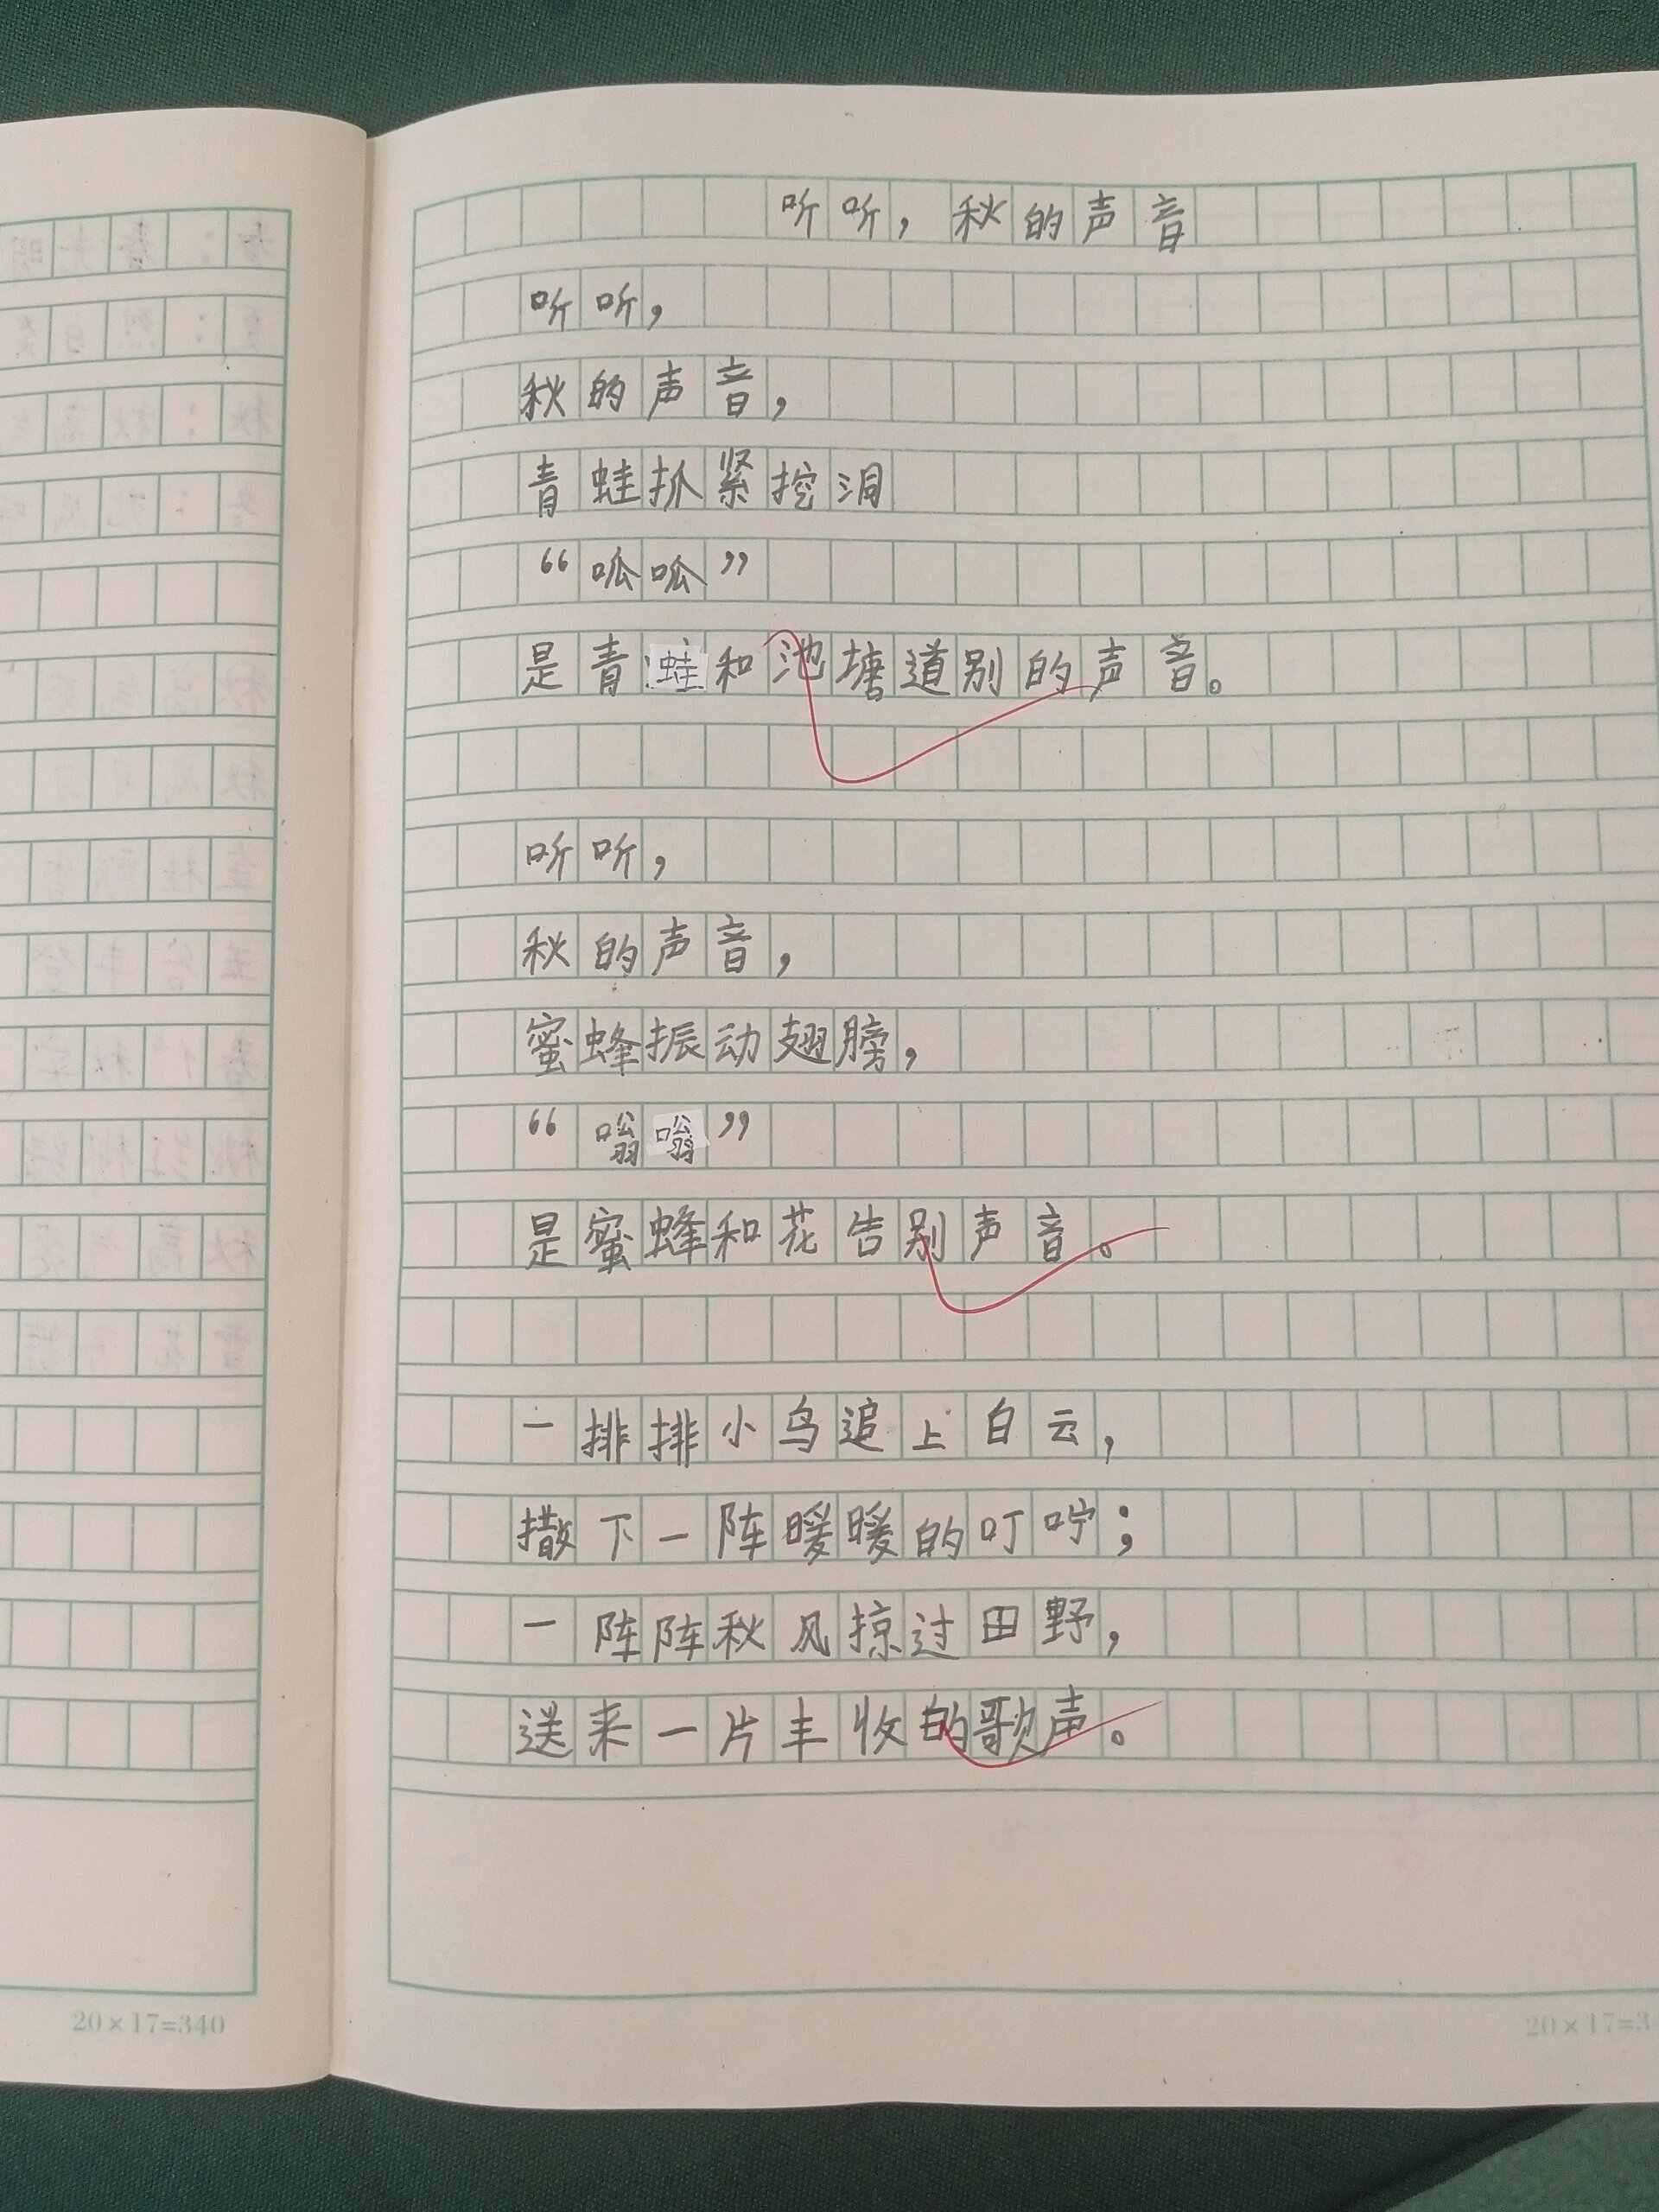 听听，秋的声音
听听，
秋的声音，
青蛙抓紧挖洞
“呱呱”
是青蛙和池塘道别的声音。
听听，
秋的声音，
蜜蜂振动翅膀，
“嗡嗡”
是蜜蜂和花告别声音。
一排排小鸟追上白云，
撒下一阵暖暖的叮咛；
一阵阵秋风掠过田野，
送来一片丰收的歌声。
20×17=340
20×17=3